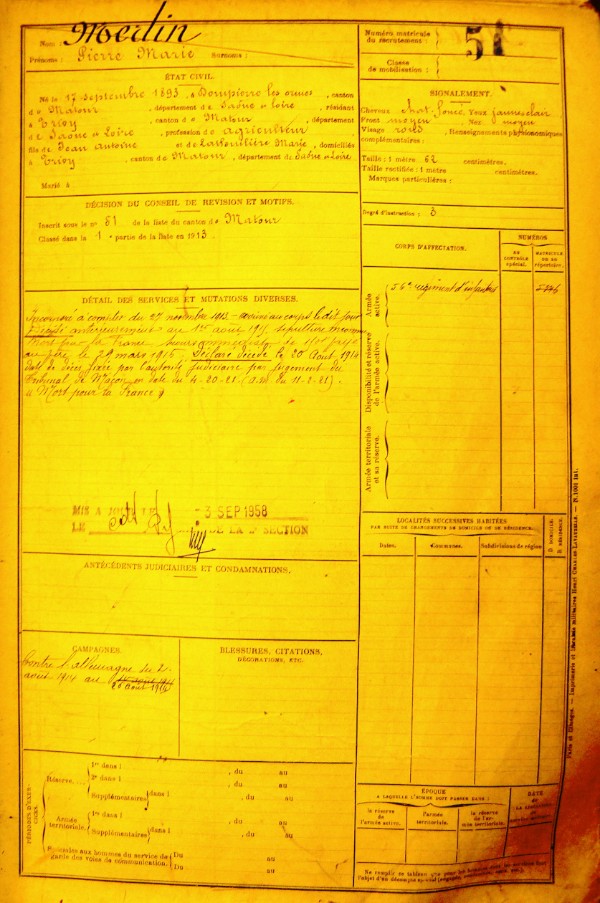 Nom : Merlin
Prénoms : Pierre Marie Surnoms :
Numéro matricule
du recrutement :
51
Classe
de mobilisation :
ÉTAT CIVIL.
Né le 17 septembre 1893, à Dompierre les ormes, canton
de Matour, département de Saône et Loire, résidant
à Trivy, canton de Matour, département
de Saône et Loire, profession de agriculteur
fils de Jean Antoine et de Marie, domiciliés
à Trivy, canton de Matour, département de Saône et Loire
Marié à
SIGNALEMENT.
Cheveux chat. foncé Yeux jaune clair
Front moyen Nez moyen
Visage rond Renseignements physionomiques
complémentaires :
Taille : 1 mètre 62 centimètres.
Taille rectifiée : 1 mètre centimètres.
Marques particulières :
DÉCISION DU CONSEIL DE REVISION ET MOTIFS.
Inscrit sous le n° 51 de la liste du canton de Matour
Classé dans la 1e partie de la liste en 1913
Degré d'instruction : 3
CORPS D'AFFECTATION.
NUMÉROS
AU
CONTRÔLE
spécial.
MATRICULE
OU AU
répertoire.
Armée
active.
56e régiment d'infanterie
Disponibilité et réserve
de l'armée active.
Armée territoriale
et sa réserve.
DÉTAIL DES SERVICES ET MUTATIONS DIVERSES.
Incorporé à compter du 27 novembre 1913 - arrivé au corps le dit jour
Décédé antérieurement au 1er août 1915, sépulture inconnue
Mort pour la France
au père le 29 mars 1916. Déclaré décédé le 20 août 1914
date de décès fixée par l'autorité judiciaire par jugement du
Tribunal de Macon en date du 4-20-21. (a.m. du 11-2-21).
" Mort pour la France "
MIS A JOUR LE - 3 SEP 1958
LE DE LA 2e SECTION
LOCALITÉS SUCCESSIVES HABITÉES
PAR SUITE DE CHANGEMENTS DE DOMICILE OU DE RÉSIDENCE.
Dates. Communes. Subdivisions de région D. DOMICILE. R. RÉSIDENCE.
ANTÉCÉDENTS JUDICIAIRES ET CONDAMNATIONS.
CAMPAGNES.
Contre l'allemagne du 2
août 1914 au
20 août 1914
BLESSURES, CITATIONS,
DÉCORATIONS, ETC.
PÉRIODES D'EXERCICES.
Réserve
1re dans l , du au
2e dans l , du au
Supplémentaires dans l , du au
Armée
territoriale
1re dans l , du au
Supplémentaires dans l , du au
Spéciales aux hommes du service de
garde des voies de communication.
Du au
Du au
ÉPOQUE
A LAQUELLE L'HOMME DOIT PASSER DANS :
la réserve
de l'armée active.
l'armée
territoriale.
la réserve
de l'armée territoriale.
DATE
DE LA LIBÉRATION
Paris et Limoges. — Imprimerie et librairie militaires Henri CHARLES-LAVAUZELLE.